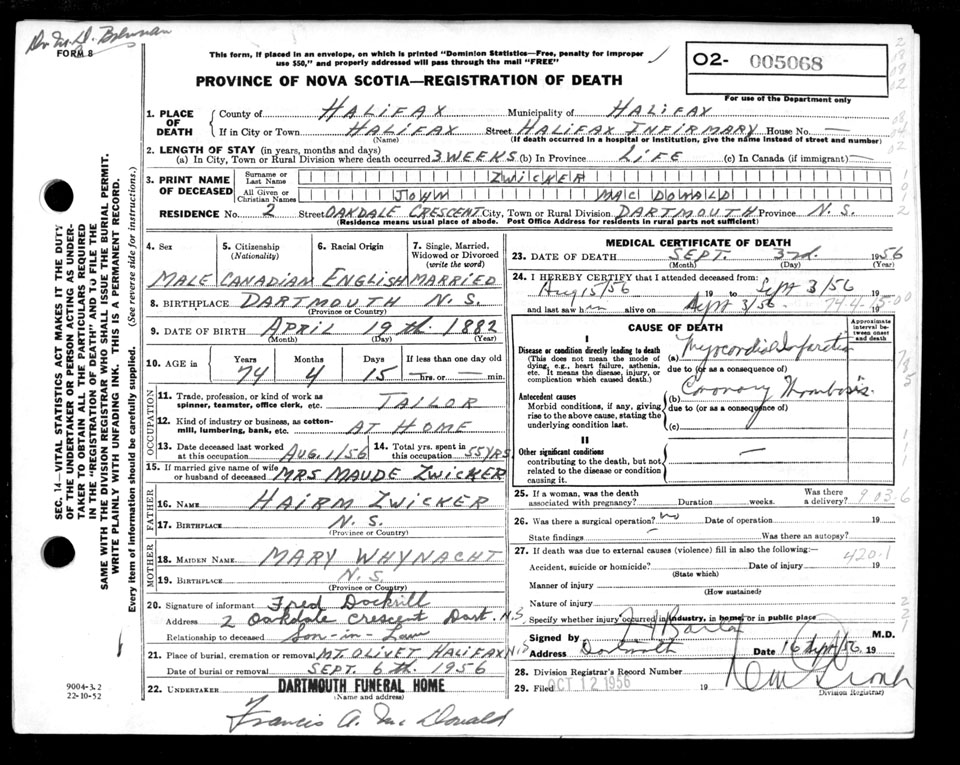 Dr M.D. Brennan
FORM 8
This form, if placed in an envelope, on which is printed "Dominion Statistics—Free, penalty for improper
use $50," and properly addressed will pass through the mail "FREE"
PROVINCE OF NOVA SCOTIA—REGISTRATION OF DEATH
O2- 005068
For use of the Department only
1. PLACE OF DEATH County of HALIFAX Municipality of HALIFAX
If in City or Town HALIFAX Street HALIFAX INFIRMARY House No. —
(Name) (If death occurred in a hospital or institution, give the name instead of street and number)
2. LENGTH OF STAY (in years, months and days)
(a) In City, Town or Rural Division where death occurred 3 WEEKS (b) In Province LIFE (c) In Canada (if immigrant) —
3. PRINT NAME OF DECEASED Surname or Last Name ZWICKER
All Given or Christian Names JOHN MAC DONALD
RESIDENCE No. 2 Street OAKDALE CRESCENT City, Town or Rural Division DARTMOUTH Province N.S.
(Residence means usual place of abode. Post Office Address for residents in rural parts not sufficient)
4. Sex 5. Citizenship (Nationality) 6. Racial Origin 7. Single, Married, Widowed or Divorced (write the word)
MALE CANADIAN ENGLISH MARRIED
8. BIRTHPLACE DARTMOUTH N.S.
(Province or Country)
9. DATE OF BIRTH APRIL 19th. 1882
(Month) (Day) (Year)
10. AGE in Years Months Days If less than one day old
74 4 15 — hrs. or — min.
OCCUPATION
11. Trade, profession, or kind of work as
spinner, teamster, office clerk, etc. TAILOR
12. Kind of industry or business, as cotton-
mill, lumbering, bank, etc. AT HOME
13. Date deceased last worked at this occupation AUG. 1/56 14. Total yrs. spent in this occupation 55 YRS.
15. If married give name of wife or husband of deceased MRS MAUDE ZWICKER
FATHER
16. NAME HAIRM ZWICKER
17. BIRTHPLACE N.S.
(Province or Country)
MOTHER
18. MAIDEN NAME MARY WHYNACHT
19. BIRTHPLACE N.S.
(Province or Country)
20. Signature of informant Fred Dockrill
Address 2 Oakdale Crescent Dart. N.S.
Relationship to deceased Son-in-Law
21. Place of burial, cremation or removal MT. OLIVET HALIFAX N.S
Date of burial or removal SEPT. 6th. 1956
22. UNDERTAKER DARTMOUTH FUNERAL HOME
(Name and address)
Francis A. Mc Donald
MEDICAL CERTIFICATE OF DEATH
23. DATE OF DEATH SEPT. 3rd. 1956
(Month) (Day) (Year)
24. I HEREBY CERTIFY that I attended deceased from:
Aug 15/56 19 to Sept 3/56 19
and last saw h im alive on Sept 3/56 19
74-4-15-00
CAUSE OF DEATH
Approximate interval between onset and death
I
Disease or condition directly leading to death (a) Myocardial Infarction
(This does not mean the mode of
dying, e.g., heart failure, asthenia,
etc. It means the disease, injury, or
complication which caused death.)
due to (or as a consequence of)
Antecedent causes (b) Coronary Thrombosis
Morbid conditions, if any, giving
rise to the above cause, stating the
underlying condition last.
due to (or as a consequence of)
(c)
II
Other significant conditions —
contributing to the death, but not
related to the disease or condition
causing it.
25. If a woman, was the death associated with pregnancy? Duration weeks. Was there a delivery? 903.6
26. Was there a surgical operation? no Date of operation 19
State findings — Was there an autopsy?
27. If death was due to external causes (violence) fill in also the following:—
420.1
Accident, suicide or homicide? Date of injury 19
(State which)
Manner of injury
(How sustained)
Nature of injury
Specify whether injury occurred in industry, in home, or in public place
Signed by M.D.
Address Dartmouth Date 16 Sept/56 19
28. Division Registrar's Record Number
29. Filed OCT 12 1956 19
Division Registrar
SEC. 14—VITAL STATISTICS ACT MAKES IT THE DUTY
OF THE UNDERTAKER OR PERSON ACTING AS UNDER-
TAKER TO OBTAIN ALL THE PARTICULARS REQUIRED
IN THE "REGISTRATION OF DEATH" AND TO FILE THE
SAME WITH THE DIVISION REGISTRAR WHO SHALL ISSUE THE BURIAL PERMIT.
WRITE PLAINLY WITH UNFADING INK. THIS IS A PERMANENT RECORD.
Every item of information should be carefully supplied. (See reverse side for instructions.)
9004-3.2
22-10-52